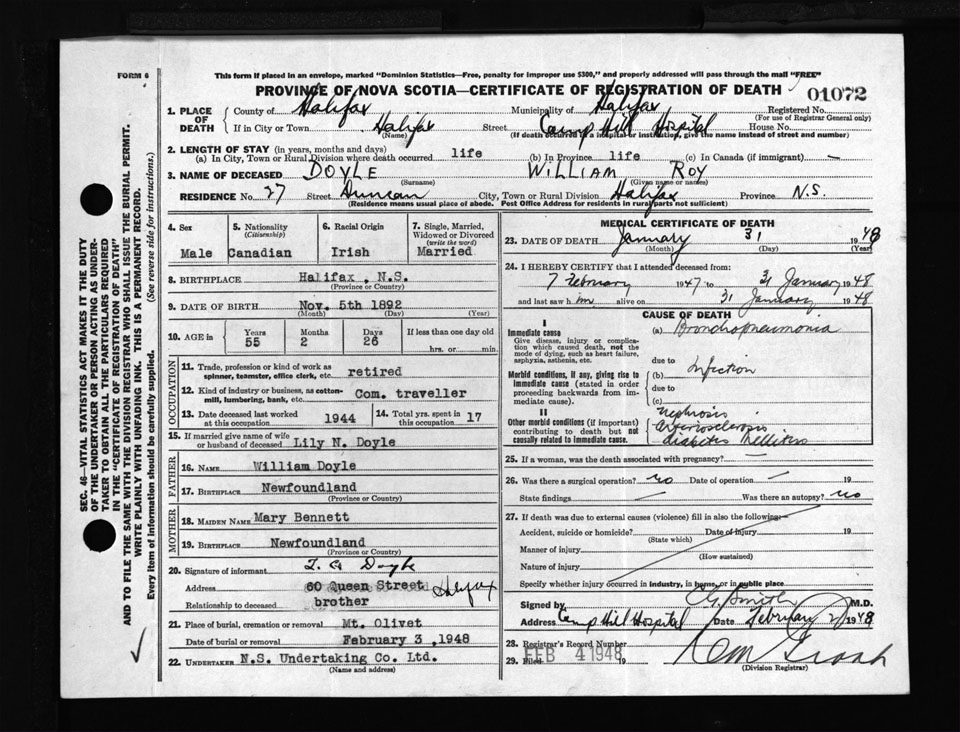 FORM 6
This form if placed in an envelope, marked "Dominion Statistics—Free, penalty for improper use $300," and properly addressed will pass through the mail "FREE"
PROVINCE OF NOVA SCOTIA—CERTIFICATE OF REGISTRATION OF DEATH
01072
1. PLACE OF DEATH
County of Halifax Municipality of Halifax Registered No.
(Name) (For use of Registrar General only)
If in City or Town Halifax Street Camp Hill Hospital House No.
(Name) (If death occurred in a hospital or institution, give the name instead of street and number)
2. LENGTH OF STAY (in years, months and days)
(a) In City, Town or Rural Division where death occurred life (b) In Province life (c) In Canada (if immigrant) —
3. NAME OF DECEASED DOYLE WILLIAM ROY
(Surname) (Given name or names)
RESIDENCE No. 27 Street Duncan City, Town or Rural Division Halifax Province N.S.
(Residence means usual place of abode. Post Office Address for residents in rural parts not sufficient)
4. Sex Male
5. Nationality (Citizenship) Canadian
6. Racial Origin Irish
7. Single, Married, Widowed or Divorced (write the word) Married
8. BIRTHPLACE Halifax, N.S.
(Province or Country)
9. DATE OF BIRTH Nov. 5th 1892
(Month) (Day) (Year)
10. AGE in Years 55 Months 2 Days 26 If less than one day old hrs. or min.
OCCUPATION
11. Trade, profession or kind of work as spinner, teamster, office clerk, etc. retired
12. Kind of industry or business, as cotton-mill, lumbering, bank, etc. Com. traveller
13. Date deceased last worked at this occupation 1944
14. Total yrs. spent in this occupation 17
15. If married give name of wife or husband of deceased Lily N. Doyle
FATHER
16. NAME William Doyle
17. BIRTHPLACE Newfoundland
(Province or Country)
MOTHER
18. MAIDEN NAME Mary Bennett
19. BIRTHPLACE Newfoundland
(Province or Country)
20. Signature of informant Doyle
Address 60 Queen Street Halifax
Relationship to deceased brother
21. Place of burial, cremation or removal Mt. Olivet
Date of burial or removal February 3, 1948
22. UNDERTAKER N.S. Undertaking Co. Ltd.
(Name and address)
MEDICAL CERTIFICATE OF DEATH
23. DATE OF DEATH January 31 1948
(Month) (Day) (Year)
24. I HEREBY CERTIFY that I attended deceased from:
7 February 1947 to 31 January 1948
and last saw him alive on 31 January 1948
CAUSE OF DEATH
I
Immediate cause
Give disease, injury or complication which caused death, not the mode of dying, such as heart failure, asphyxia, asthenia, etc.
(a) Bronchopneumonia
due to
Morbid conditions, if any, giving rise to immediate cause (stated in order proceeding backwards from immediate cause).
(b) Infection
due to
(c)
II
Other morbid conditions (if important) contributing to death but not causally related to immediate cause.
Nephrosis
Arteriosclerosis
Diabetes Mellitus
25. If a woman, was the death associated with pregnancy? —
26. Was there a surgical operation? no Date of operation — 19
State findings — Was there an autopsy? no
27. If death was due to external causes (violence) fill in also the following:—
Accident, suicide or homicide? Date of injury 19
(State which)
Manner of injury
(How sustained)
Nature of injury
Specify whether injury occurred in industry, in home, or in public place
Signed by Smith M.D.
Address Camp Hill Hospital Date February 1948
28. Registrar's Record Number
29. Filed FEB 4 1948 19
(Division Registrar)
SEC. 46—VITAL STATISTICS ACT MAKES IT THE DUTY
OF THE UNDERTAKER OR PERSON ACTING AS UNDER-
TAKER TO OBTAIN ALL THE PARTICULARS REQUIRED
IN THE "CERTIFICATE OF REGISTRATION OF DEATH"
AND TO FILE THE SAME WITH THE DIVISION REGISTRAR WHO SHALL ISSUE THE BURIAL PERMIT.
WRITE PLAINLY WITH UNFADING INK. THIS IS A PERMANENT RECORD.
Every item of information should be carefully supplied. (See reverse side for instructions.)